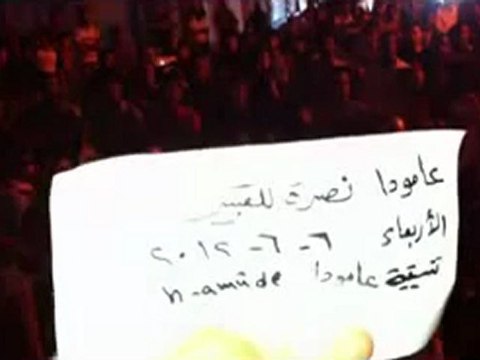 عامودا نصرة للقبير
الأربعاء ٦-٦-٢٠١٢
تنسيقية عامودا h-amûde